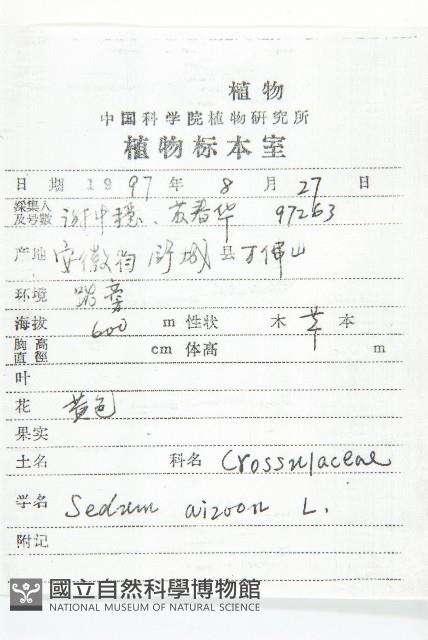 植物
中国科学院植物研究所
植物标本室
日期 1997年 8月 27日
採集人及号数 谢中稳、苏春华 97263
产地 安徽省 舒城县 万佛山
环境 路旁
海拔 600 m 性状 木 草 本
胸高直徑 cm 体高 m
叶
花 黄色
果实
土名 科名 Crossulaceae
学名 Sedum aizoon L.
附记
國立自然科學博物館
NATIONAL MUSEUM OF NATURAL SCIENCE